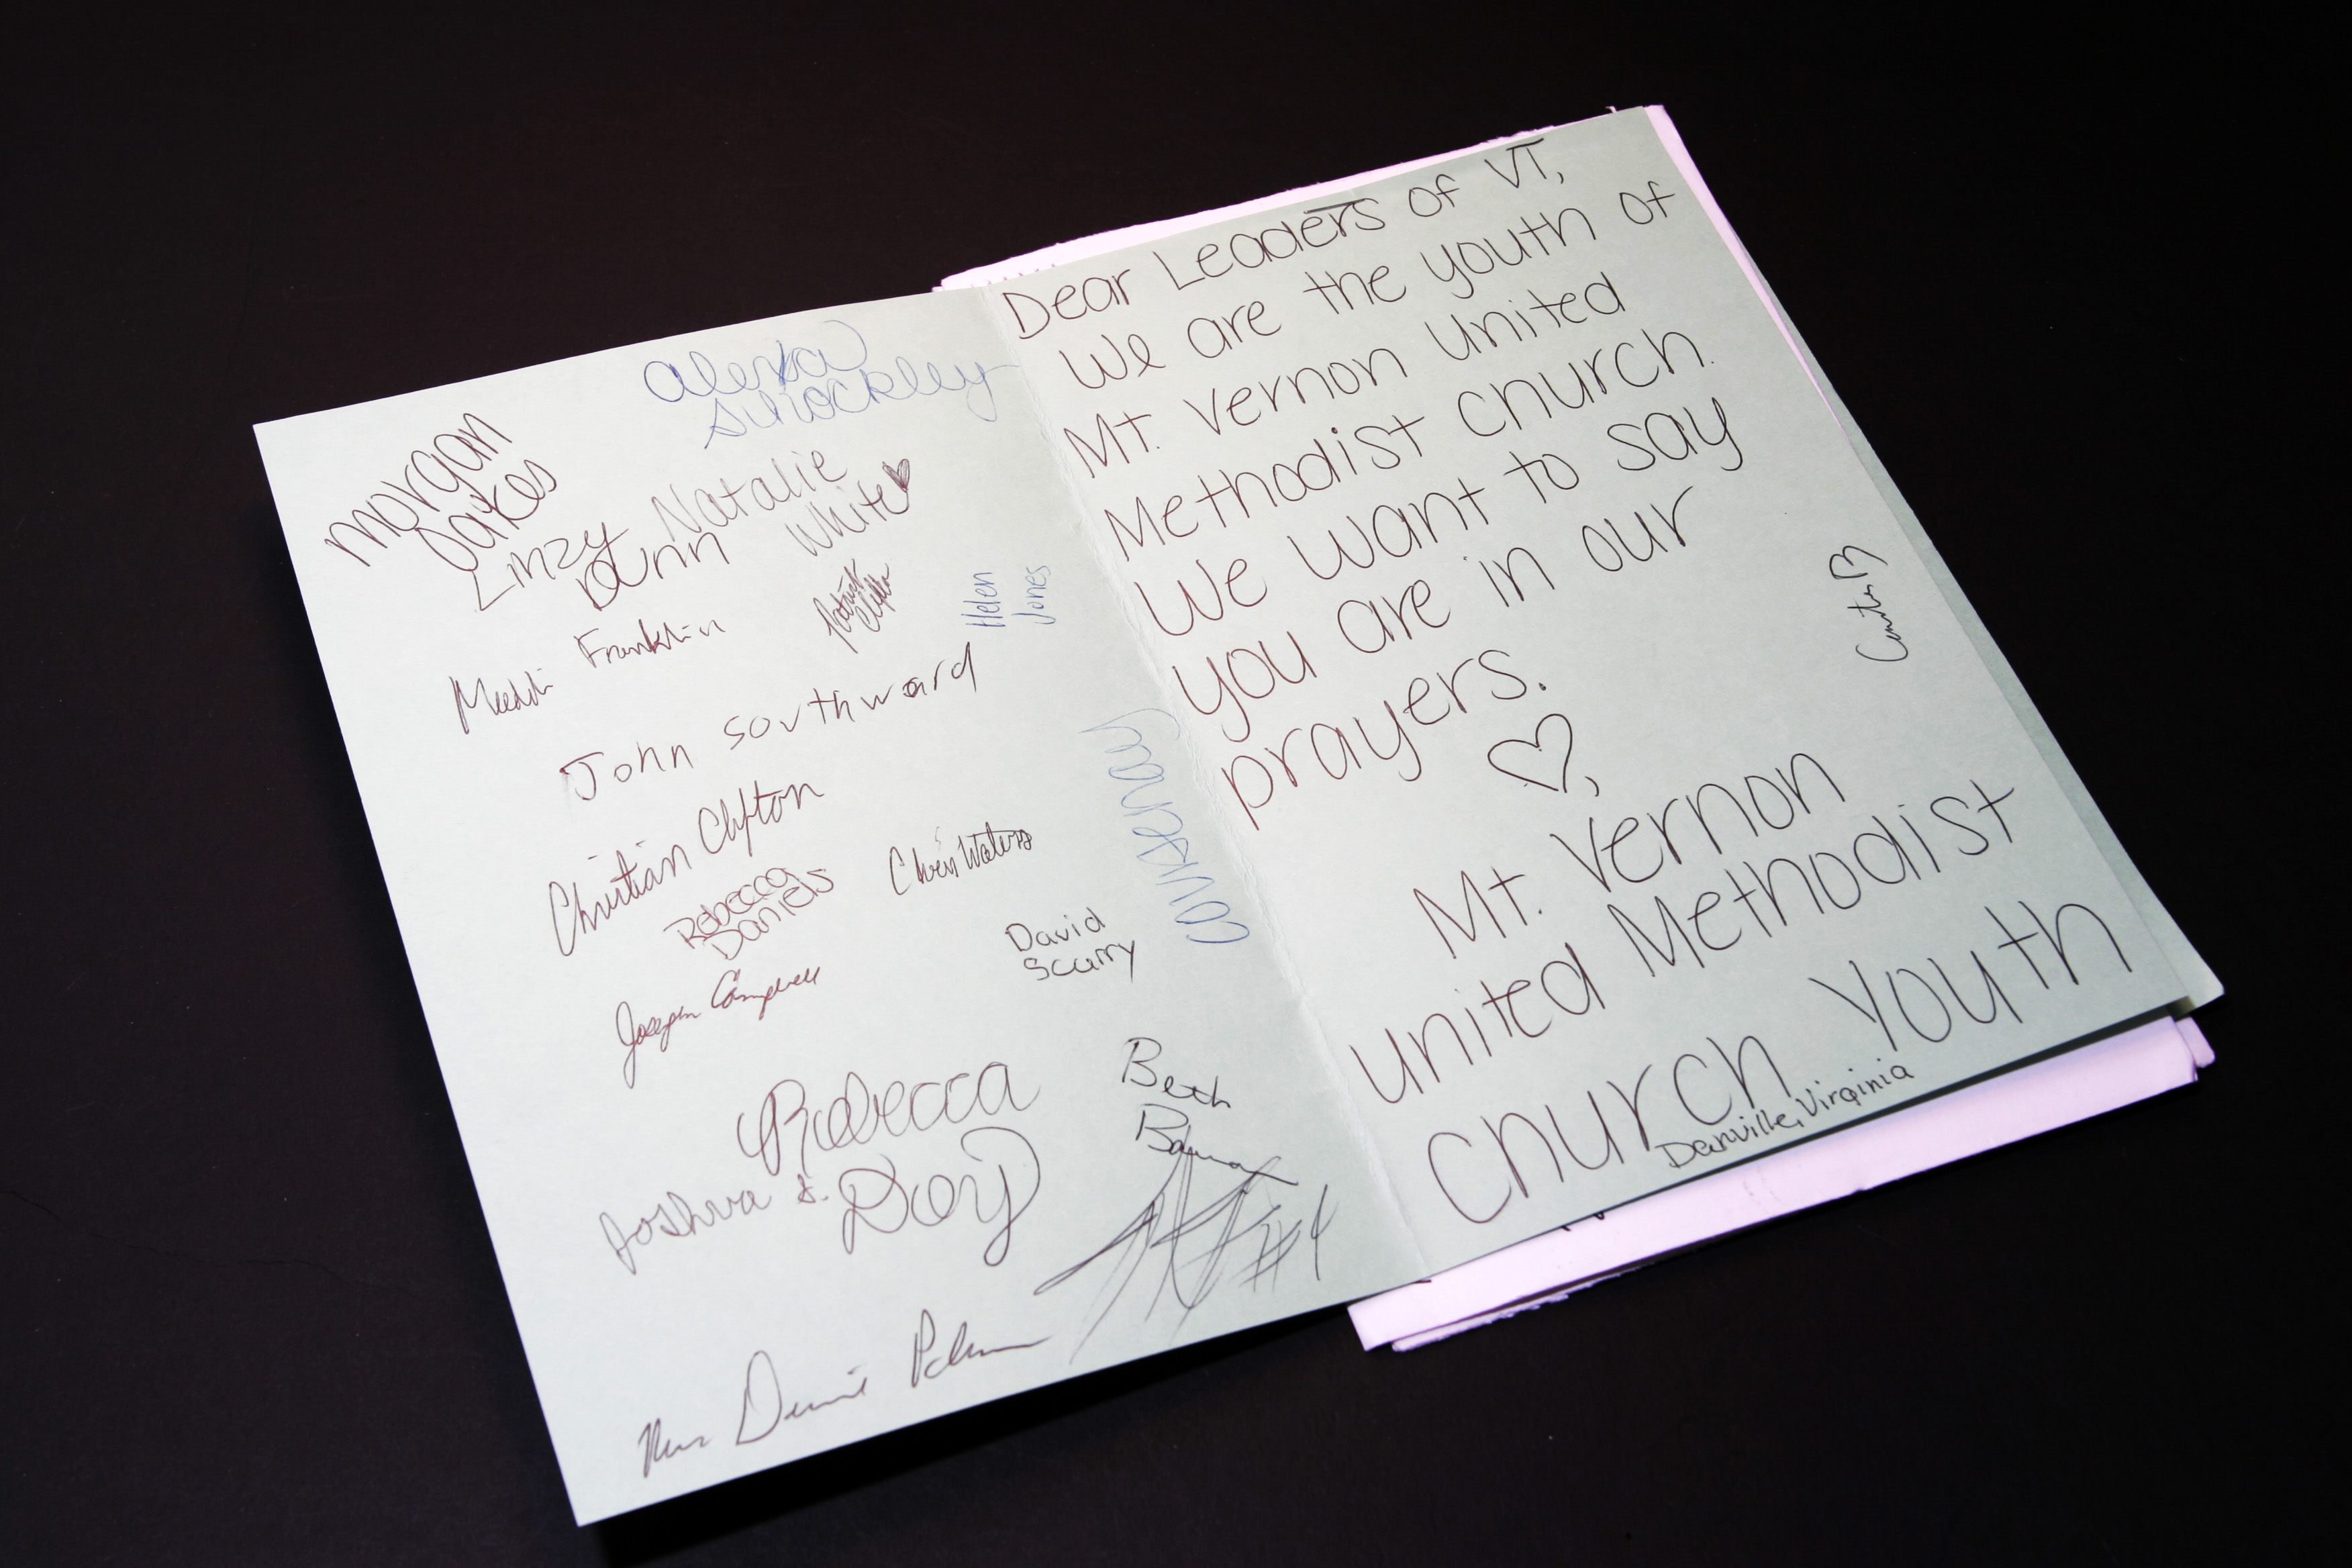 Alexa
Shockley
morgan
Oakes
Natalie
White
Linzy
Dunn
Franklin
Helen
Jones
John Southward
Christian Clifton
Rebecca
Daniels
Chris Waters
Courtenay
David
Scurry
Joseph Campbell
Rebecca
Doy
Joshua
Beth
#4
Dear Leaders of VT,
We are the youth of
Mt. Vernon United
Methodist Church.
We want to say
you are in our
prayers.
♡,
Mt. Vernon
United Methodist
Church Youth
Danville, Virginia